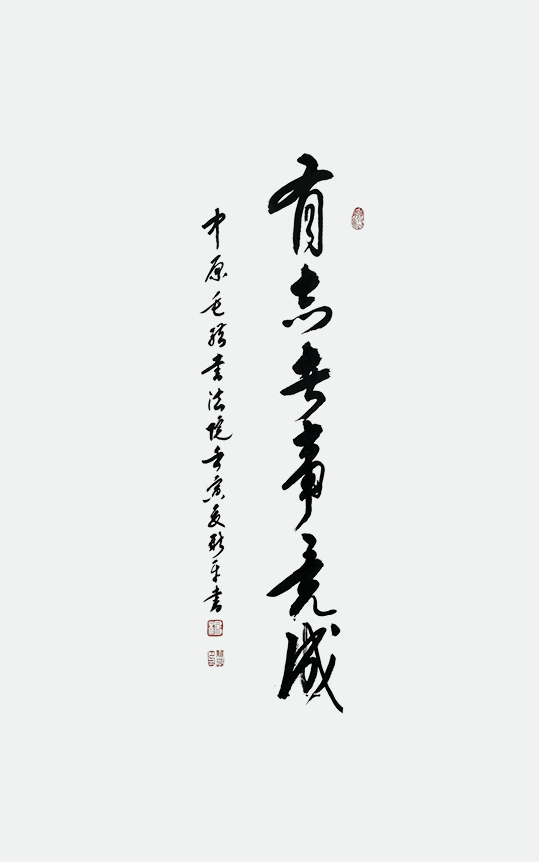 有志者事竟成
中原毛体书法院壬寅夏新平书